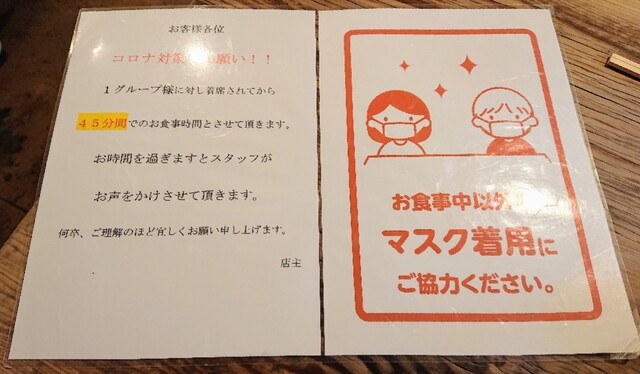 お客様各位
コロナ対策 願い！！
１グループ様に対し着席されてから
４５分間でのお食事時間とさせて頂きます。
お時間を過ぎますとスタッフが
お声をかけさせて頂きます。
何卒、ご理解のほど宜しくお願い申し上げます。
店主
お食事中以外
マスク着用に
ご協力ください。